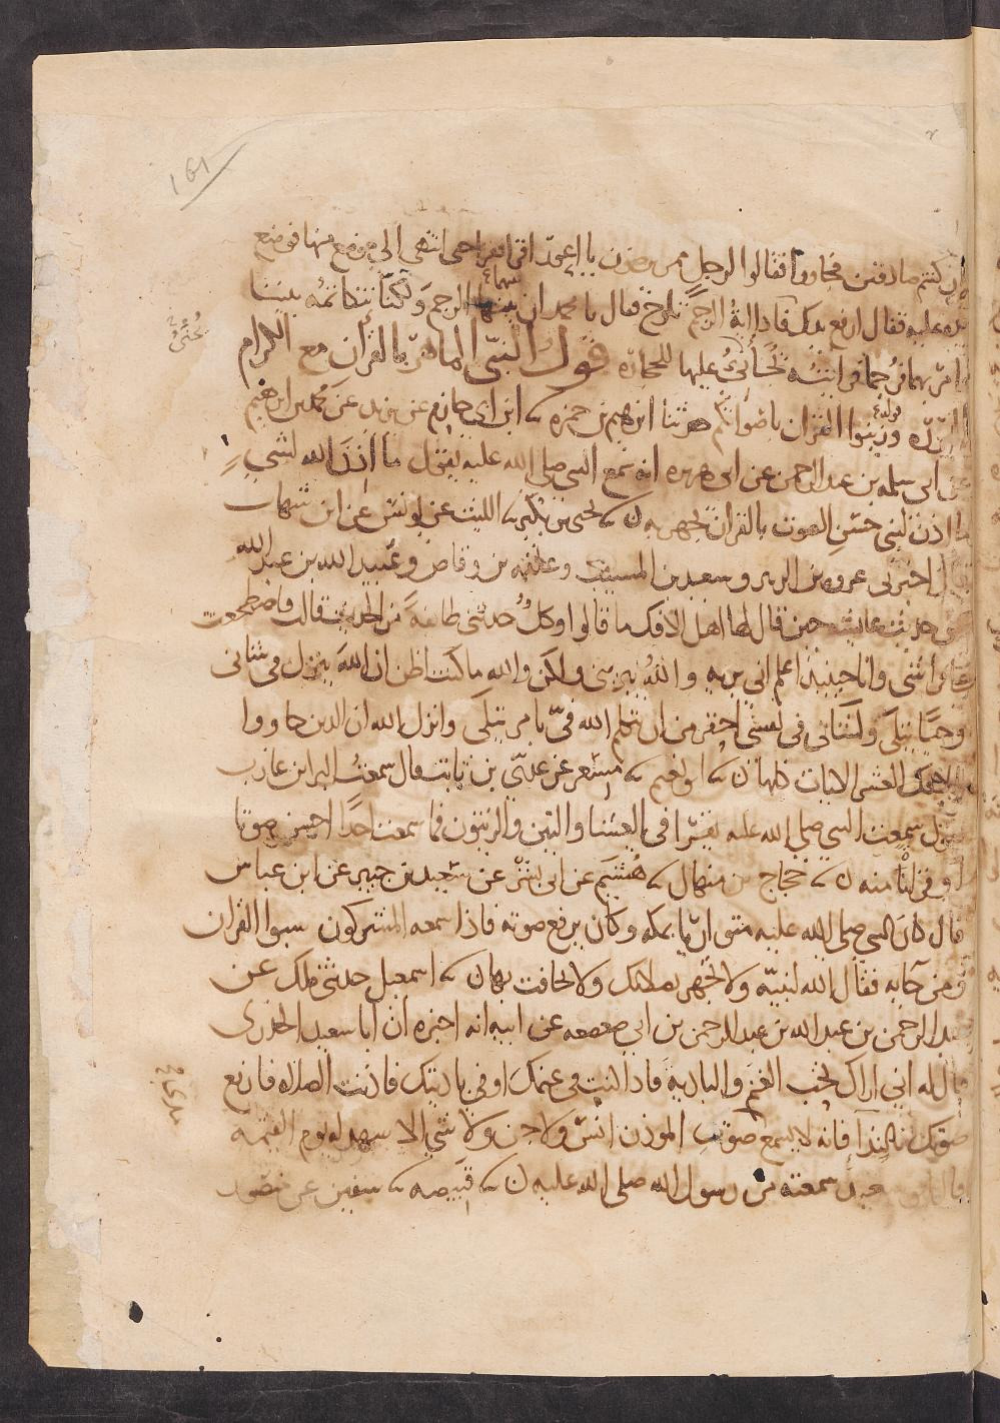 ١٥١
ان كنتم صادقين فجاووا فقالوا لرجل ممن يرضون يا اعور اقرا فقرا حتى انتهى الى موضع منها فوضع
يده عليه فقال ارفع يدك فاذا اية الرجم تلوح فقال يا محمد ان بينهما الرجم ولكنا نتكاتمه بيننا
فامر بهما فرجما فرايته يجانئ عليها الحجارة قول النبي الماهر بالقرآن مع الكرام
البررة وزينوا القرآن باصواتكم حدثنا ابرهيم بن حمزه ابن ابي حازم عن يزيد عن محمد بن ابرهيم
عن ابي سلمه بن عبد الرحمن عن ابي هريره انه سمع النبي صلى الله عليه يقول ما اذن الله لشيء
ما اذن لنبي حسن الصوت بالقرآن يجهر به يحيى بن بكير الليث عن يونس عن ابن شهاب
قال اخبرني عروه بن الزبير وسعيد بن المسيب وعلقمه بن وقاص وعبيد الله بن عبد الله
عن حديث عائشه حين قال لها اهل الافك ما قالوا وكل حدثني طائفة من الحديث قالت فاضطجعت
على فراشي وانا حينئذ اعلم اني بريه والله يبريني ولكن والله ما كنت اظن ان الله ينزل في شاني
وحيا يتلى ولشاني في نفسي احقر من ان يتكلم الله في بامر يتلى وانزل الله ان الذين جاووا
بالافك العشر الايات كلها ابو نعيم مسعر عن عدي بن ثابت قال سمعت البرا بن عازب
يقول سمعت النبي صلى الله عليه يقرا في العشا والتين والزيتون فما سمعت احدا احسن صوتا
او قراة منه حجاج بن منهال هشيم عن ابي بشر عن سعيد بن جبير عن ابن عباس
قال كان النبي صلى الله عليه متواريا بمكه وكان يرفع صوته فاذا سمعه المشركون سبوا القرآن
ومن جآ به فقال الله لنبيه ولا تجهر بصلاتك ولا تخافت بها اسمعيل حدثني ملك عن
عبد الرحمن بن عبد الله بن عبد الرحمن بن ابي صعصعه عن ابيه انه اخبره ان ابا سعيد الخدري
قال له اني اراك تحب الغنم والبادية فاذا كنت في غنمك او في باديتك فاذنت للصلاه فارفع
صوتك بالندا فانه لا يسمع صوت الموذن انس ولا جن ولا شي الا شهد له يوم القيمه
قال ابو سعيد سمعته من رسول الله صلى الله عليه قبيصه سفين عن منصور